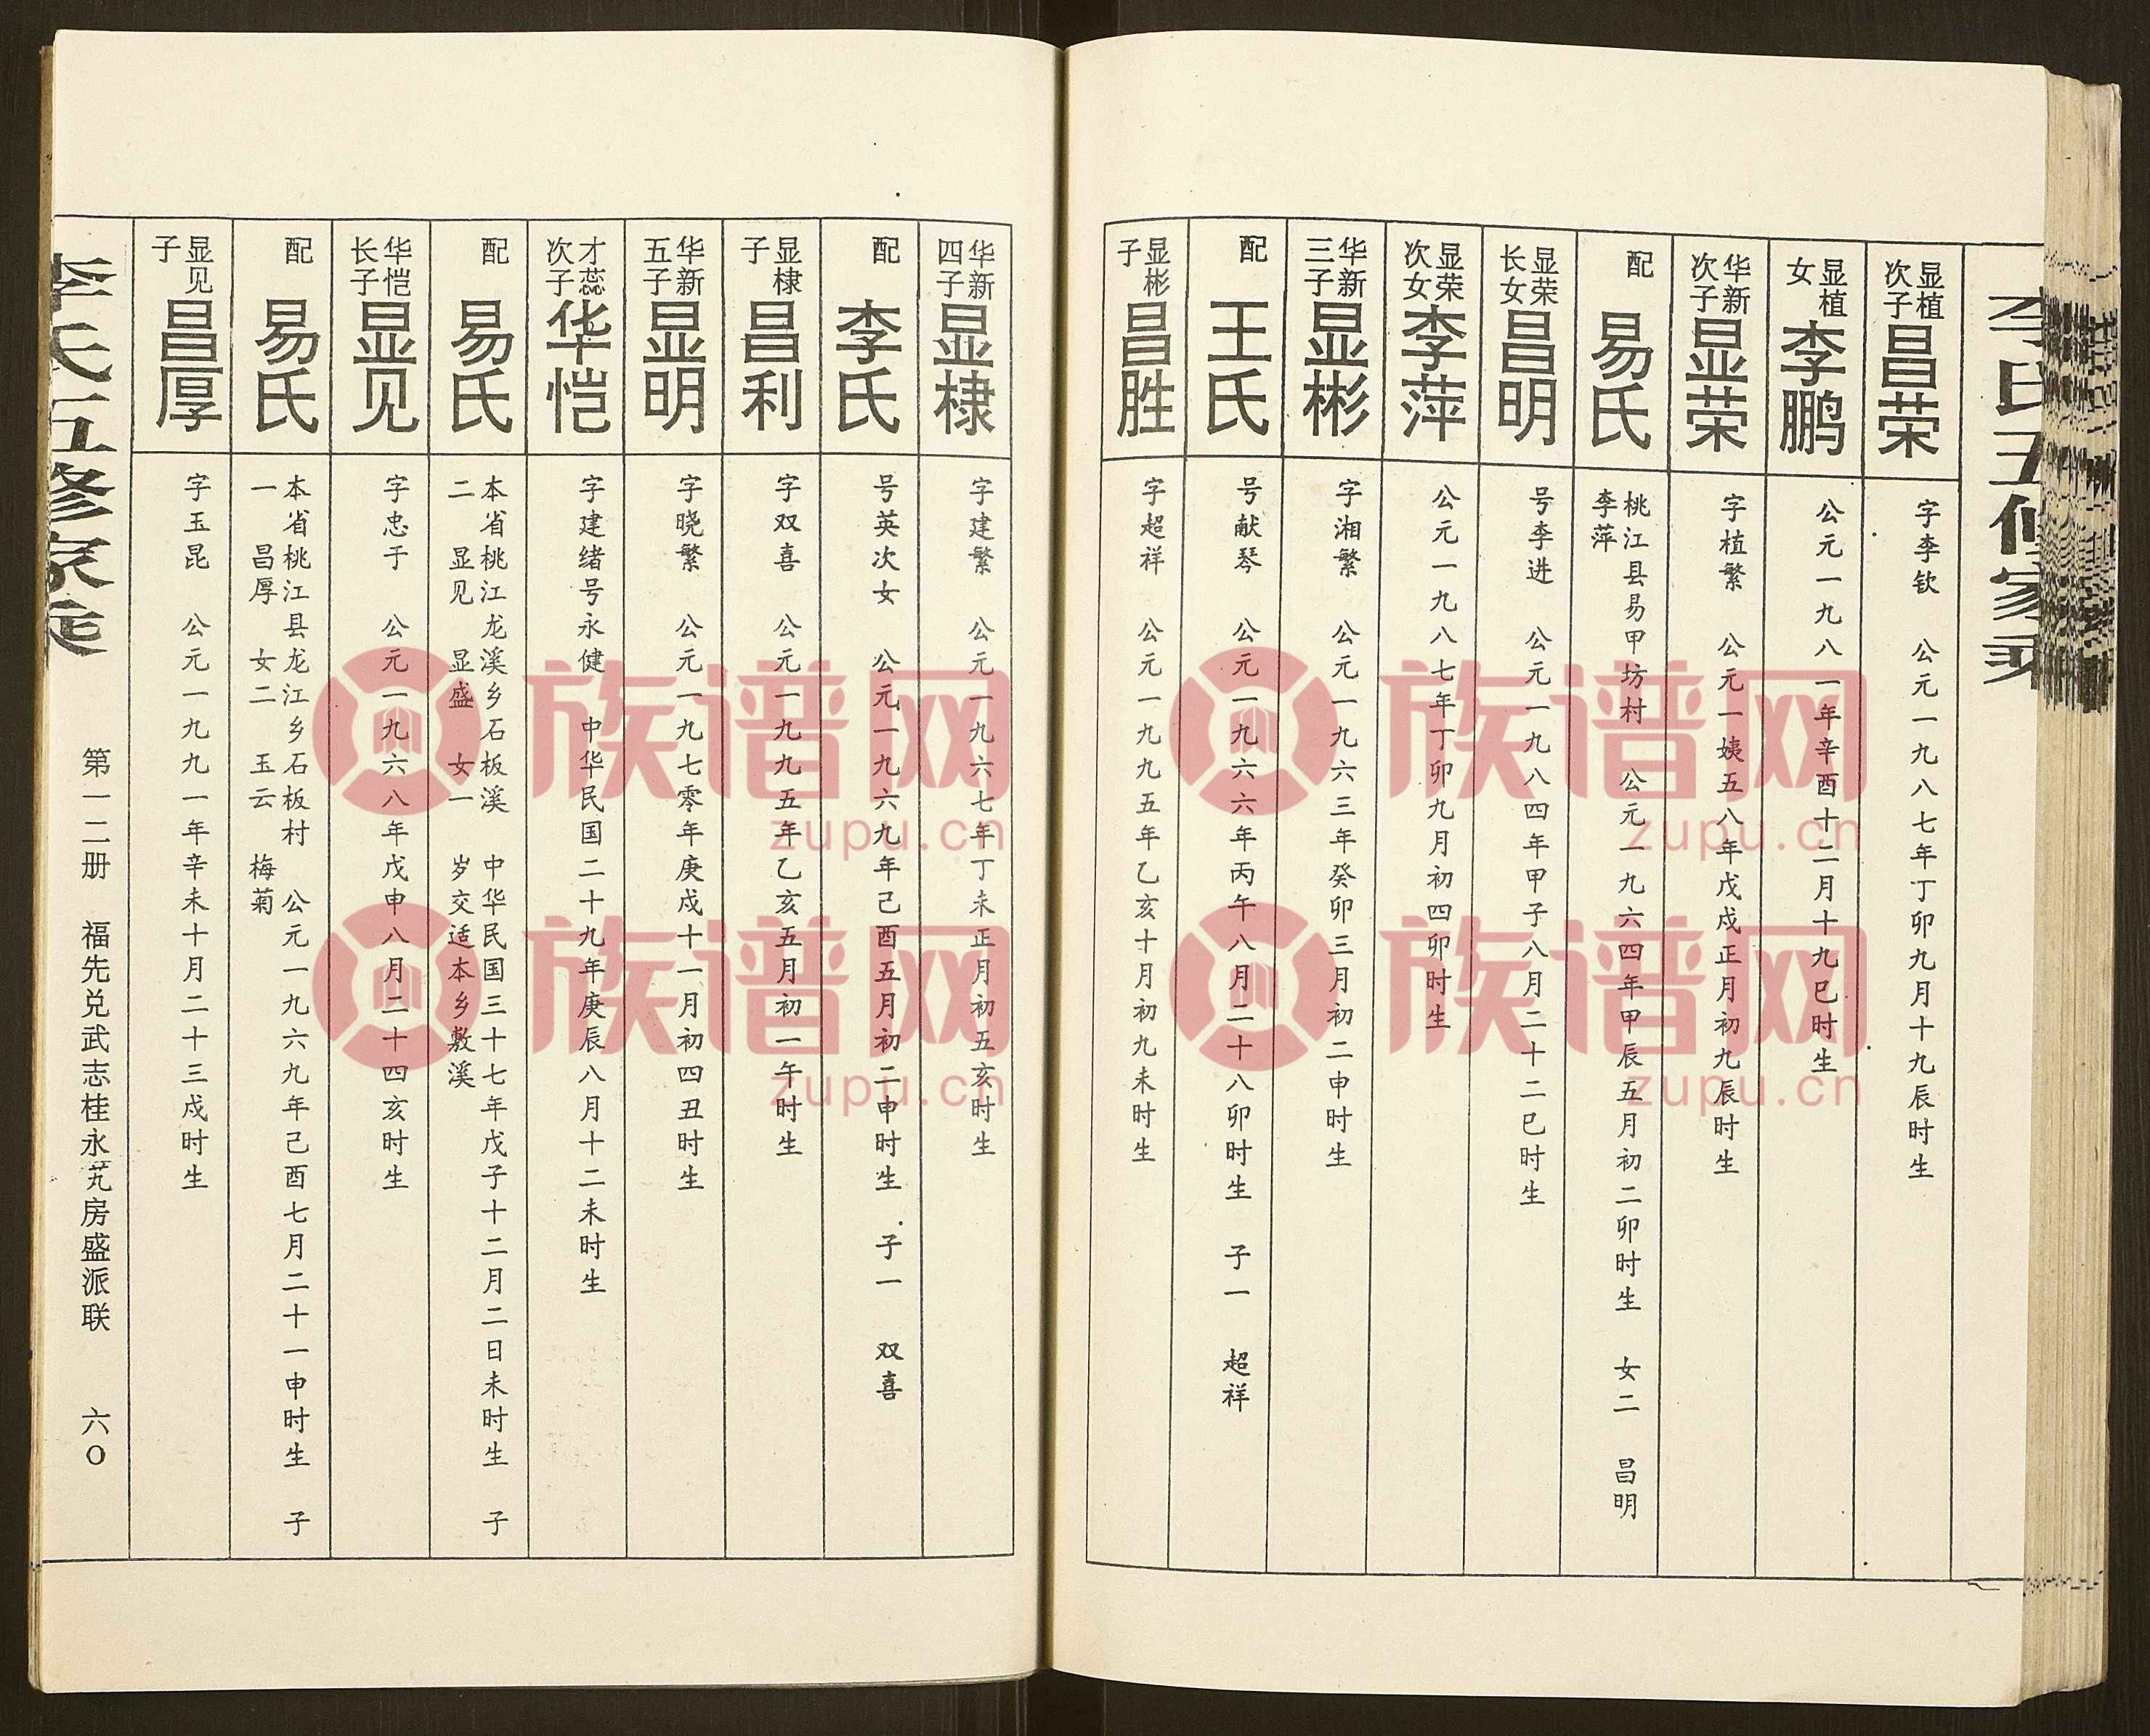 李氏五修家乘
显植次子
昌荣
字李钦 公元一九八七年丁卯九月十九辰时生
显植女
李鹏
公元一九八一年辛酉十二月十九巳时生
华新次子
显荣
字植繁 公元一姨五八年戊戌正月初九辰时生
配
易氏
桃江县易甲坊村 公元一九六四年甲辰五月初二卯时生 女二 昌明
李萍
显荣长女
昌明
号李进 公元一九八四年甲子八月二十二巳时生
显荣次女
李萍
公元一九八七年丁卯九月初四卯时生
华新三子
显彬
字湘繁 公元一九六三年癸卯三月初二申时生
配
王氏
号献琴 公元一九六六年丙午八月二十八卯时生 子一 超祥
显彬子
昌胜
字超祥 公元一九九五年乙亥十月初九未时生
华新四子
显棣
字建繁 公元一九六七年丁未正月初五亥时生
配
李氏
号英次女 公元一九六九年己酉五月初二申时生 子一 双喜
显棣子
昌利
字双喜 公元一九九五年乙亥五月初一午时生
华新五子
显明
字晓繁 公元一九七零年庚戌十一月初四丑时生
才蕊次子
华恺
字建绪号永健 中华民国二十九年庚辰八月十二未时生
配
易氏
本省桃江龙溪乡石板溪 中华民国三十七年戊子十二月二日未时生 子
二 显见 显盛 女一 岁交适本乡敷溪
华恺长子
显见
字忠于 公元一九六八年戊申八月二十四亥时生
配
易氏
本省桃江县龙江乡石板村 公元一九六九年己酉七月二十一申时生 子
一 昌厚 女二 玉云 梅菊
显见子
昌厚
字玉昆 公元一九九一年辛未十月二十三戌时生
李氏五修家乘
第一二册 福先兑武志桂永芃房盛派联 六〇
族谱网
zupu.cn
族谱网
zupu.cn
族谱网
zupu.cn
族谱网
zupu.cn